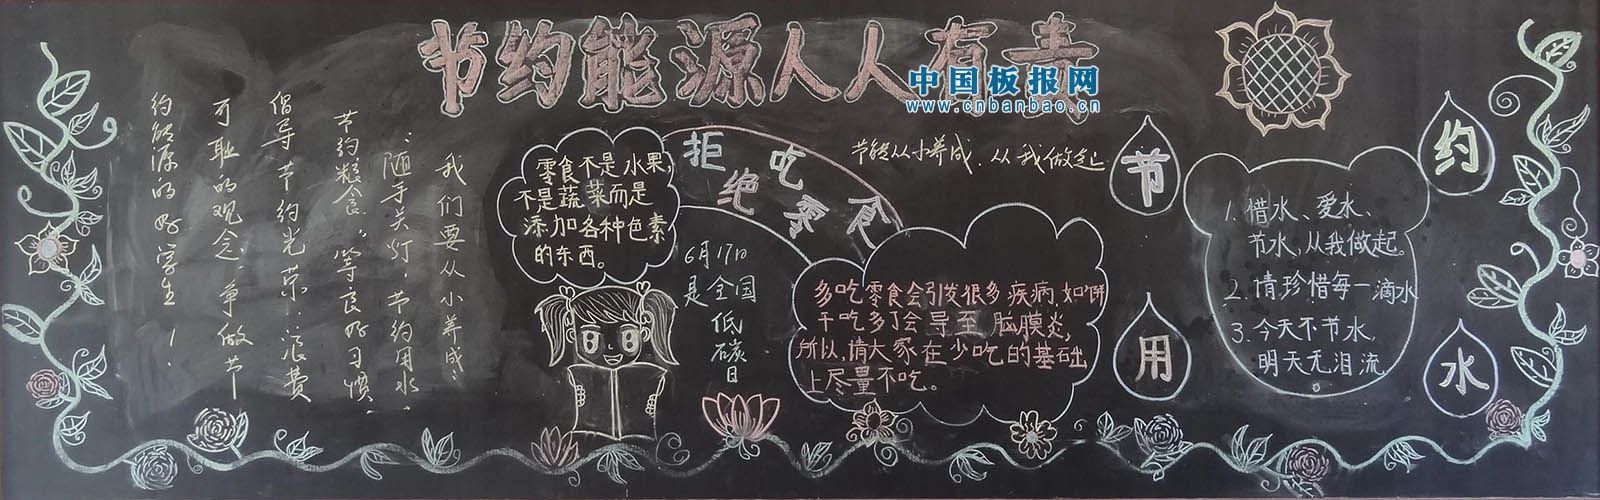 节约能源人人有责
中国板报网
www.cnbanbao.cn
我们要从小养成：
“随手关灯，节约用水，
节约粮食。”等良好习惯，
倡导节约光荣，浪费
可耻的观念，争做节
约能源的好学生！
零食不是水果，
不是蔬菜而是
添加各种色素
的东西。
拒绝吃零食
6月17日
是全国
低碳日
节能从小养成，从我做起
多吃零食会引发很多疾病，如饼
干吃多了会导至脑膜炎，
所以，请大家在少吃的基础
上尽量不吃。
节约用水
1、惜水、爱水、
节水，从我做起。
2、请珍惜每一滴水
3、今天不节水，
明天无泪流